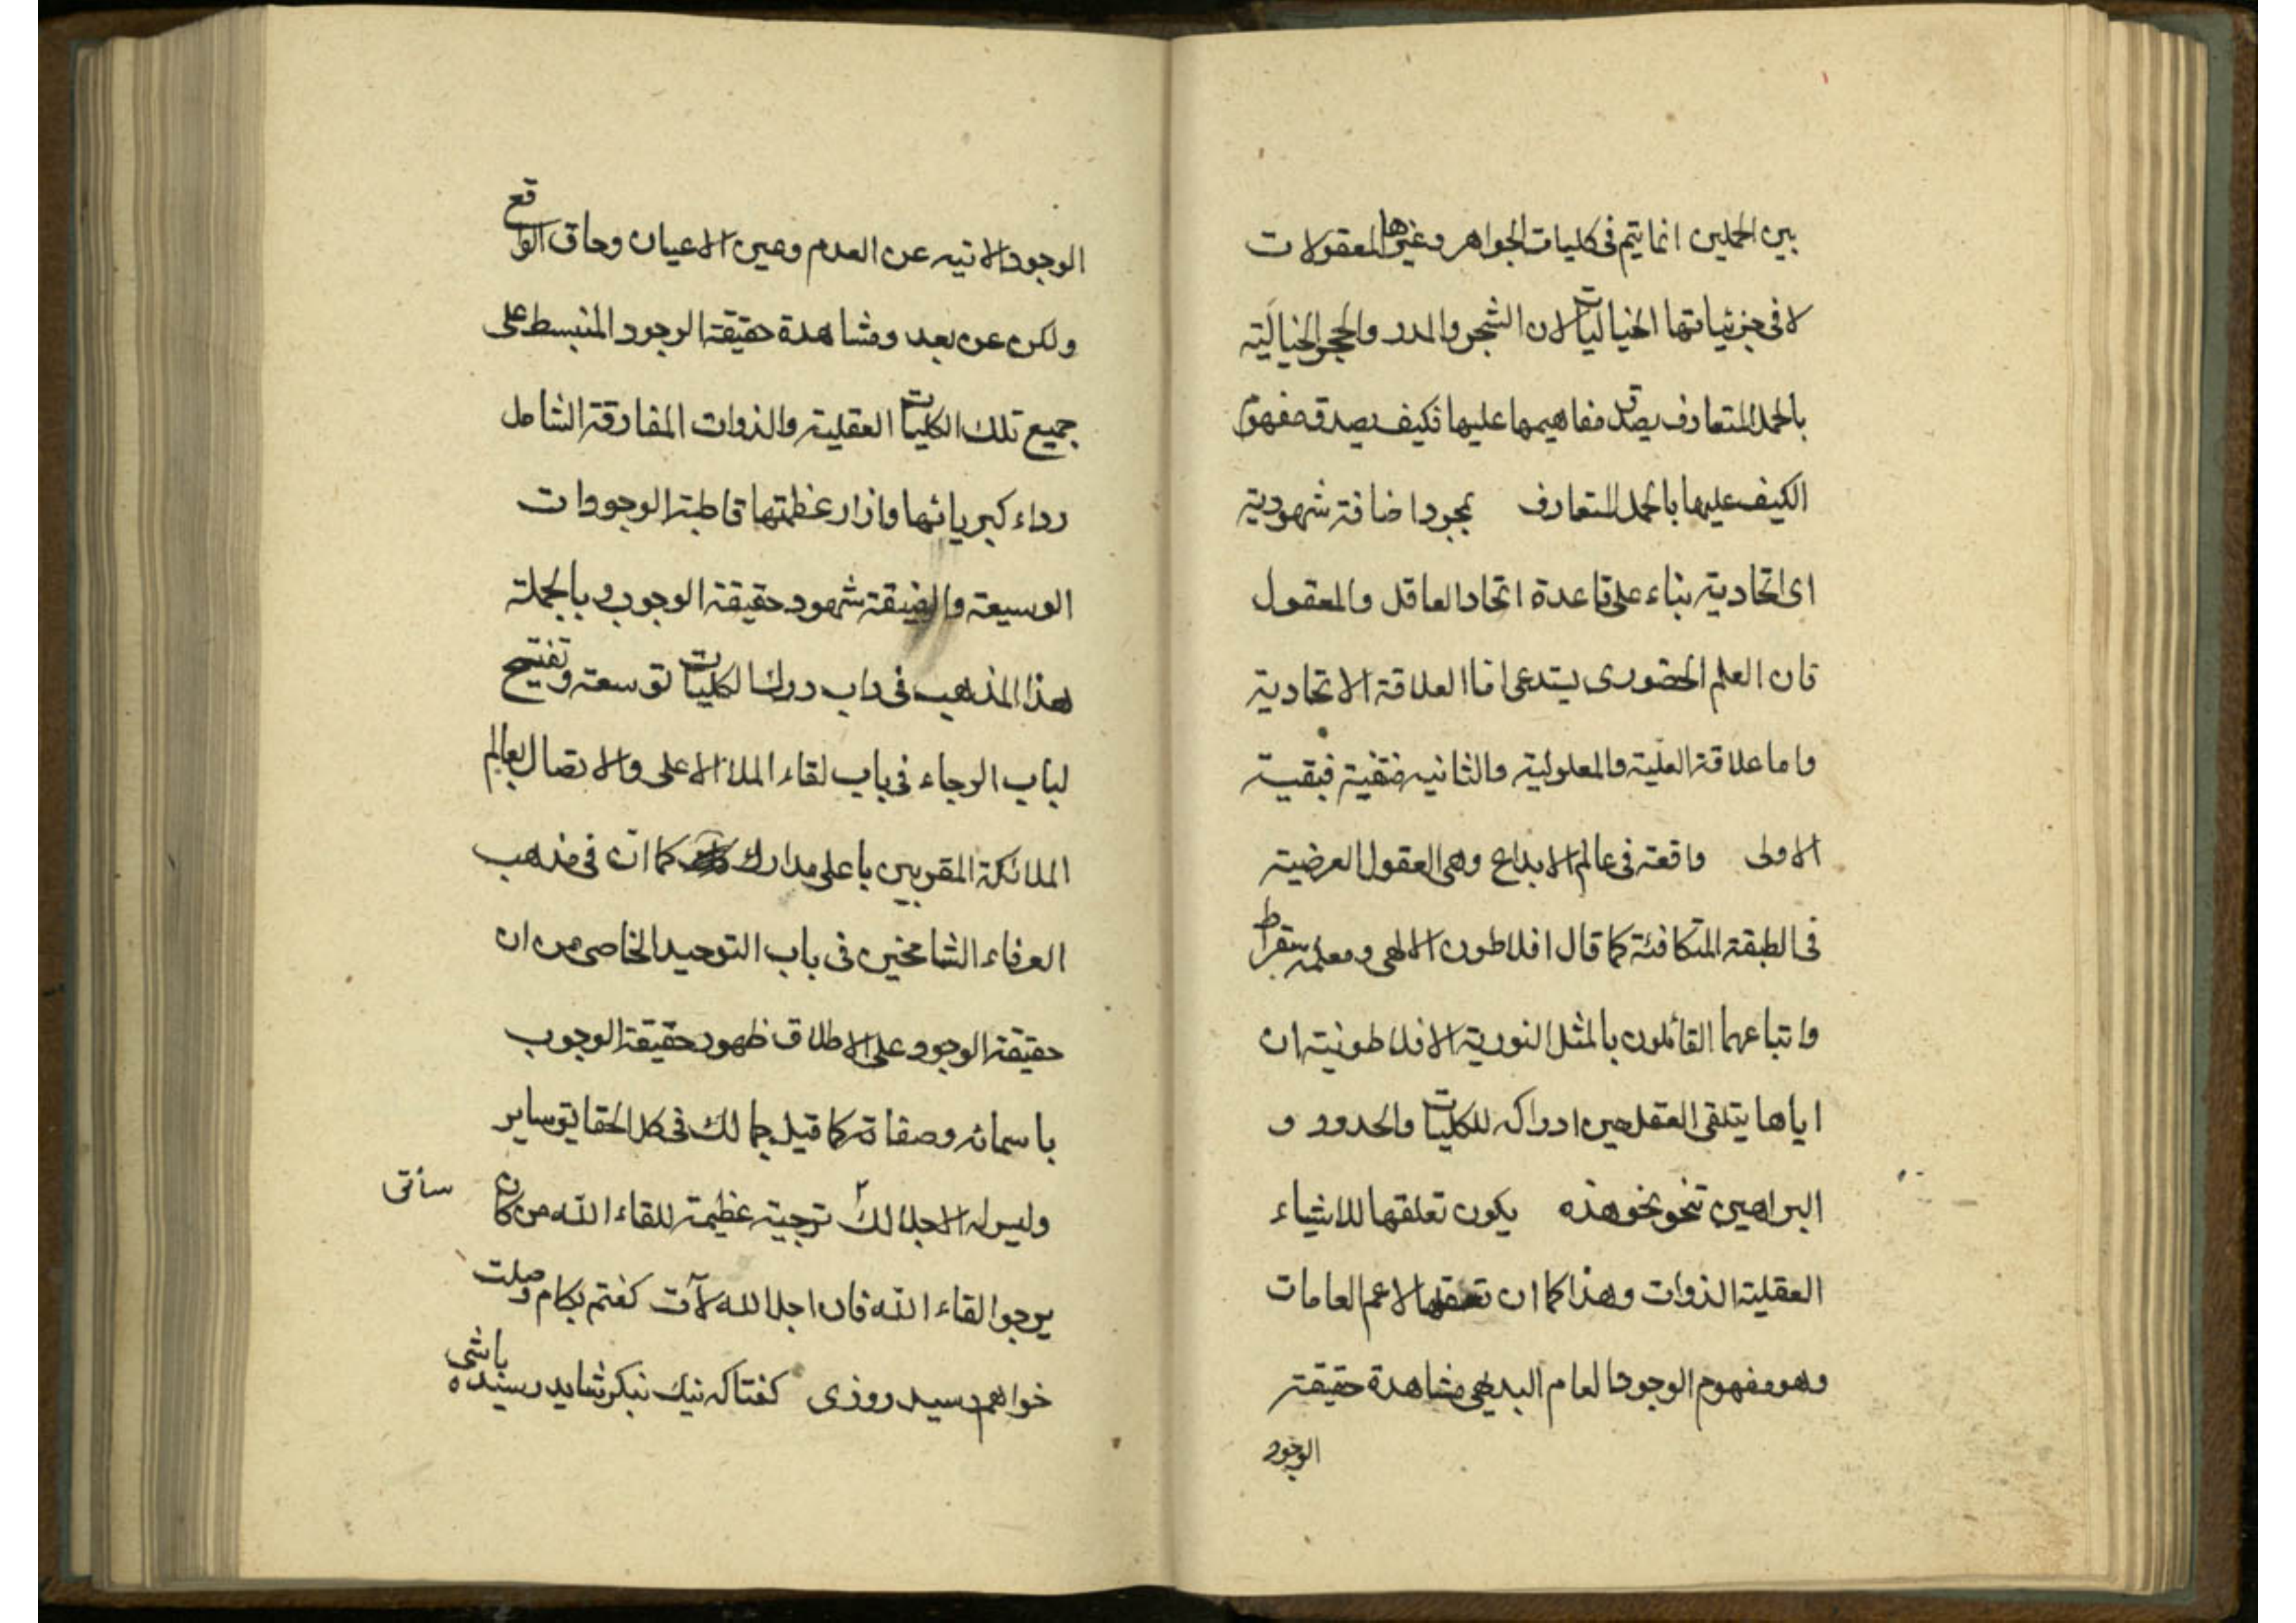 بين الحملين انما يتم فى كليات الجواهر وغيرها المعقولات
لا فى جزئياتها الخياليات لان الشجر والمدر والحجر الخيالية
بالحمل المتعارف يصدق مفاهيمها عليها فكيف يصدق مفهوم
الكيف عليها بالحمل المتعارف بمجرد اضافة شهودية
اى اتحادية بناء على قاعدة اتحاد العاقل والمعقول
فان العلم الحضورى يستدعى اما العلاقة الاتحادية
واما علاقة العلية والمعلولية والثانية منفية فبقيت
الاولى واقعة فى عالم الابداع وهى العقول العرضية
فى الطبقة المتكافئة كما قال افلاطون الالهى ومعلمه سقراط
واتباعهما القائلون بالمثل النورية الافلاطونية ان
اياها يتلقى العقل حين ادراكه للكليات والحدود و
البراهين تنحو نحو هذه يكون تعلقها للاشياء
العقلية الذوات وهذا كما ان تعقلها لاعم العامات
وهو مفهوم الوجود العام البديهى مشاهدة حقيقة
الوجود
الوجود الاتيه عن العدم وعين الاعيان وحاق الواقع
ولكن عن بعد ومشاهدة حقيقة الوجود المنبسط على
جميع تلك الكليات العقلية والذوات المفارقة الشامل
رداء كبريائها وازار عظمتها قاطبة الوجودات
الوسيعة والضيقة شهود حقيقة الوجوب وبالجملة
هذا المذهب فى داب درك الكليات توسعة وتفتيح
لباب الرجاء فى باب لقاء الملاء الاعلى والاتصال بعالم
الملائكة المقربين باعلى مدارك كما ان فى مذهب
العرفاء الشامخين فى باب التوحيد الخاصى من ان
حقيقة الوجود على الاطلاق ظهور حقيقة الوجوب
باسمائه وصفاته كما قيل جمالك فى كل الحقايق ساير
وليس له الا جلالك ساتر ترجية عظيمة للقاء الله من كان
يرجوا لقاء الله فان اجل الله لآت كفتم بكام وصلت
خواهم رسيد روزى كفتا كه نيك بنكر شايد رسيده باشى